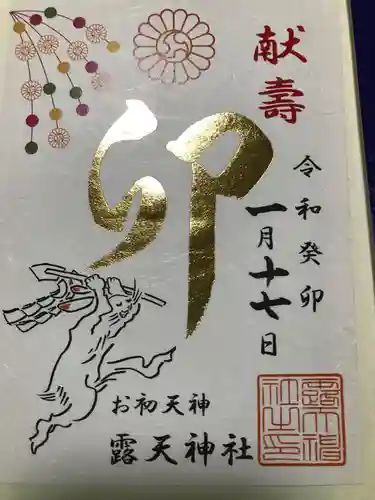 献壽
令和癸卯
一月十七日
卯
お初天神
露天神社
露天神社之印